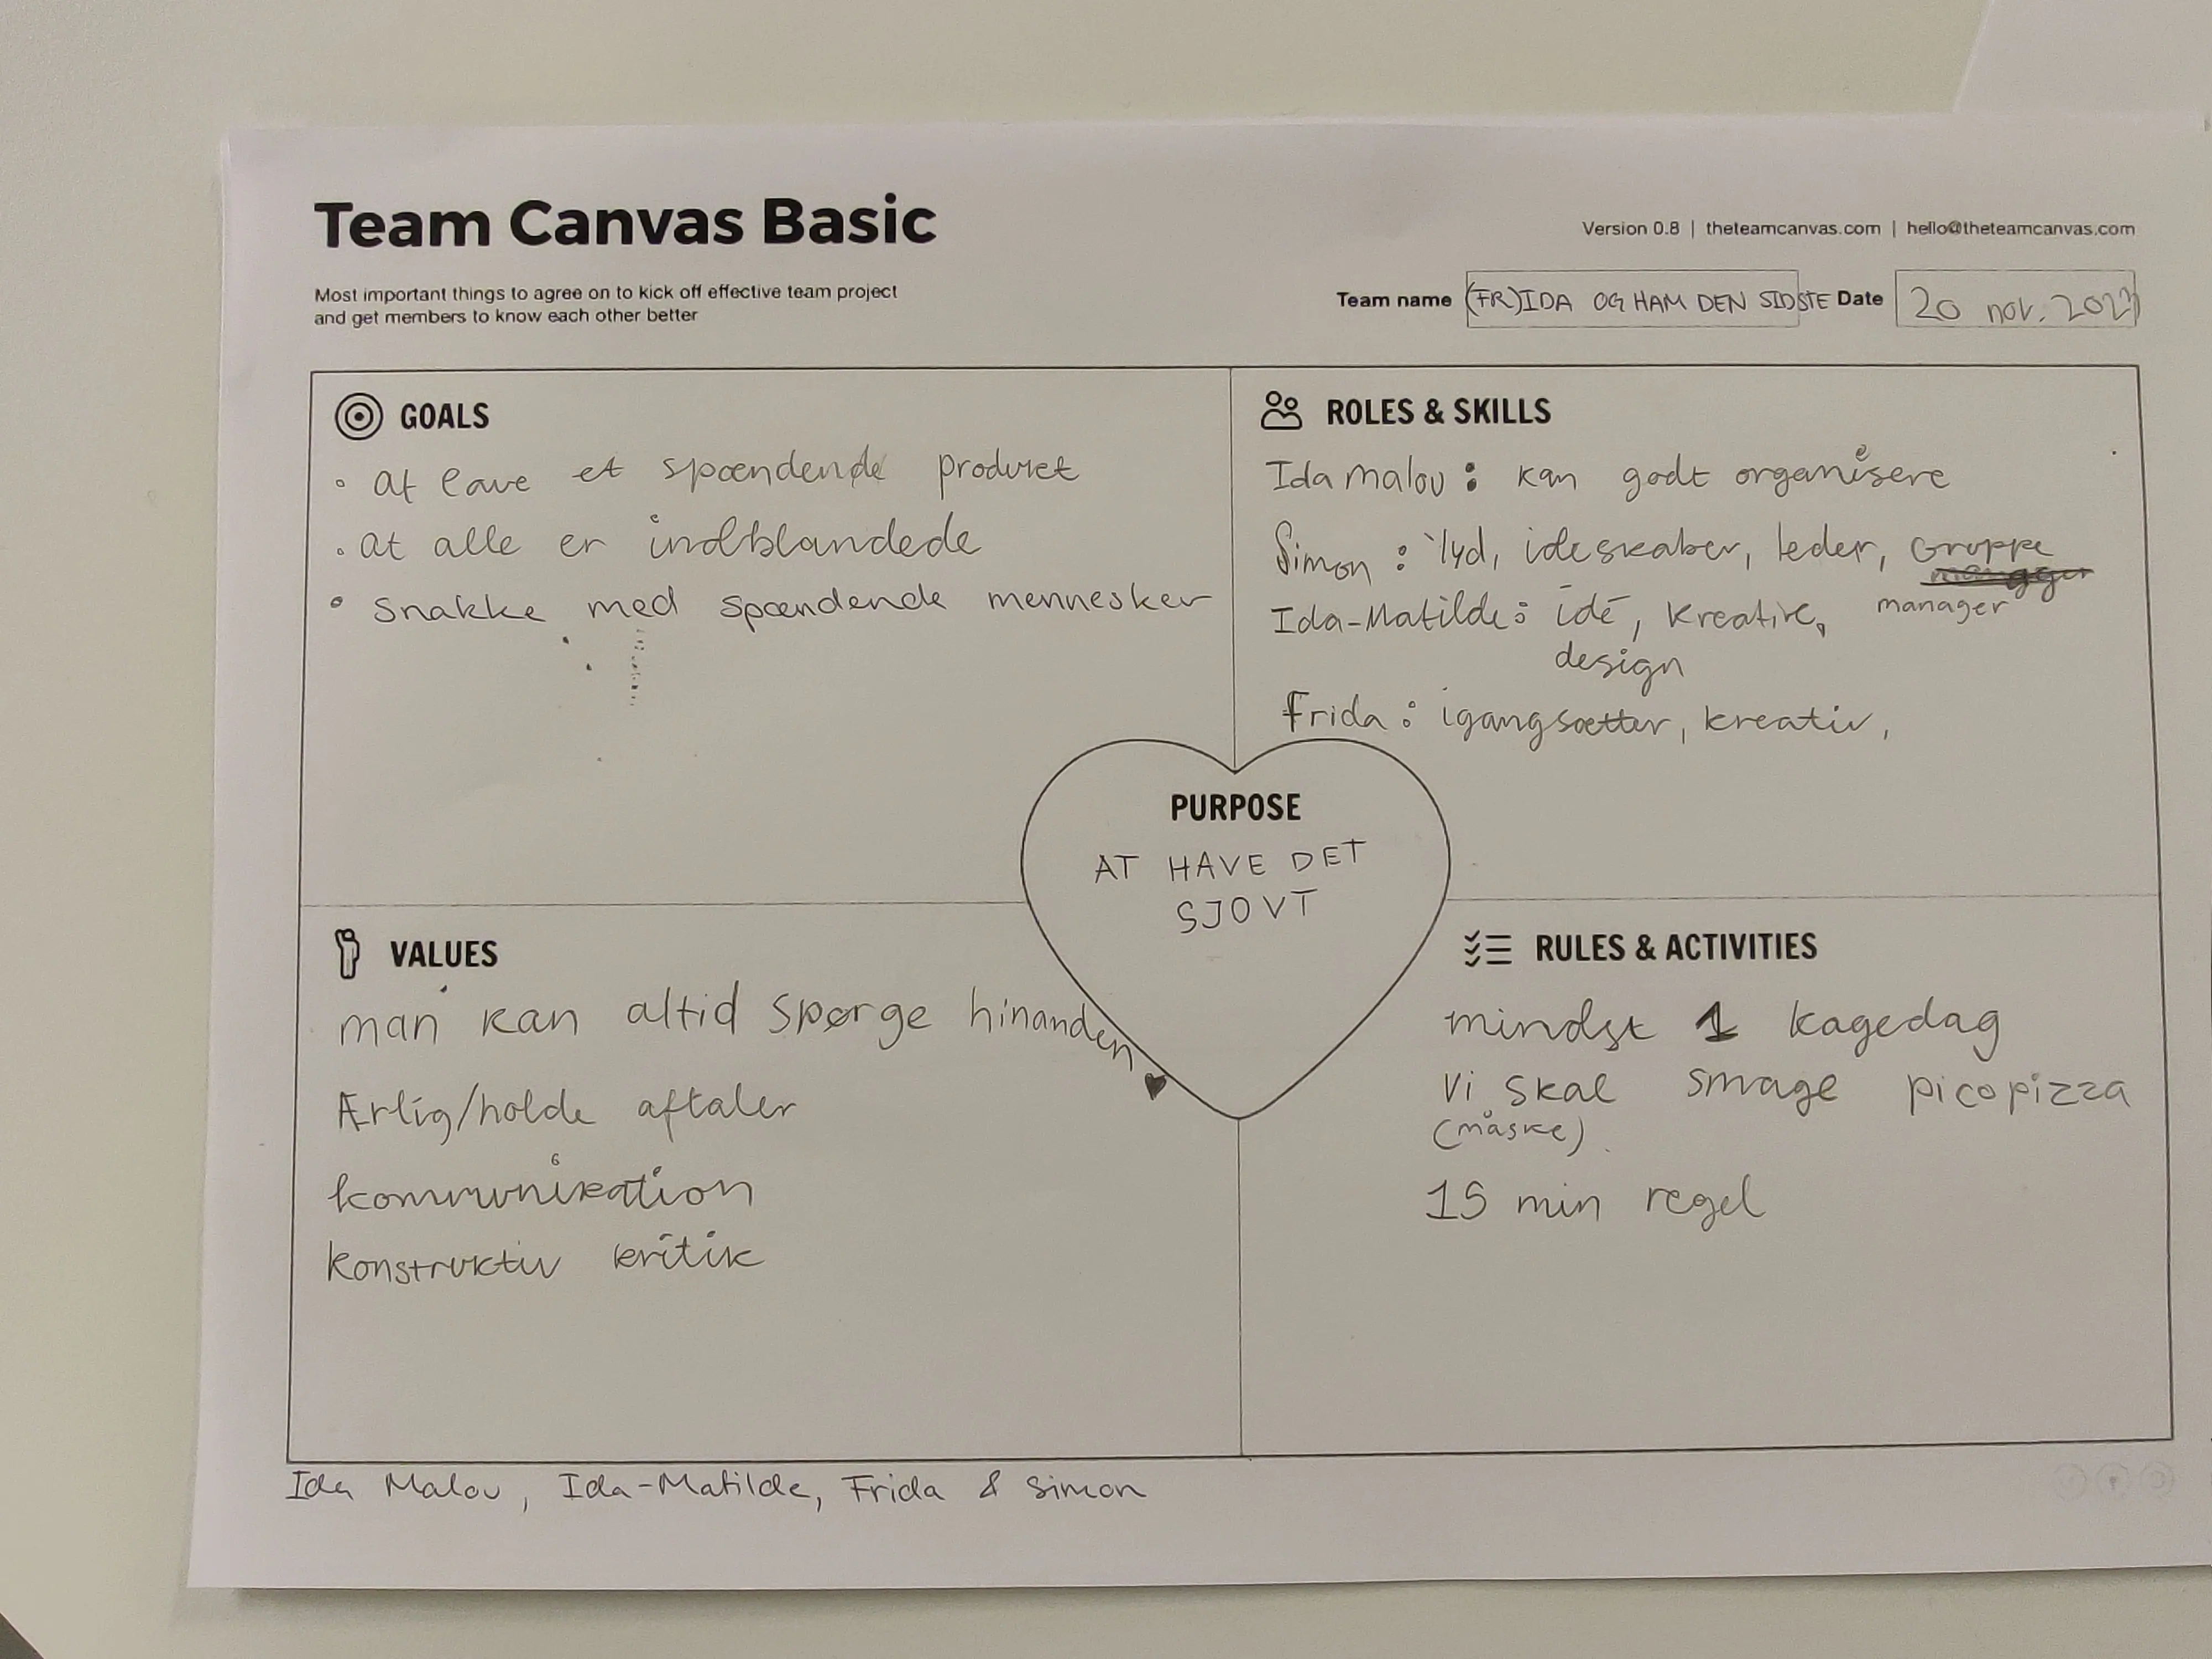 Team Canvas Basic
Most important things to agree on to kick off effective team project
and get members to know each other better
Version 0.8 | theteamcanvas.com | hello@theteamcanvas.com
Team name (FR)IDA OG HAM DEN SIDSTE Date 20 nov. 2023
GOALS
• at lave et spændende produkt
• at alle er indblandede
• snakke med spændende mennesker
ROLES & SKILLS
Ida Malou: kan godt organisere
Simon: lyd, ideskaber, leder, Gruppe
manager
Ida-Matilde: idé, kreativ,
design
Frida: igangsætter, kreativ,
PURPOSE
AT HAVE DET
SJOVT
VALUES
man kan altid spørge hinanden
Ærlig/holde aftaler
kommunikation
konstruktiv kritik
RULES & ACTIVITIES
mindst 1 kagedag
Vi skal smage picopizza
(måske)
15 min regel
Ida Malou, Ida-Matilde, Frida & Simon